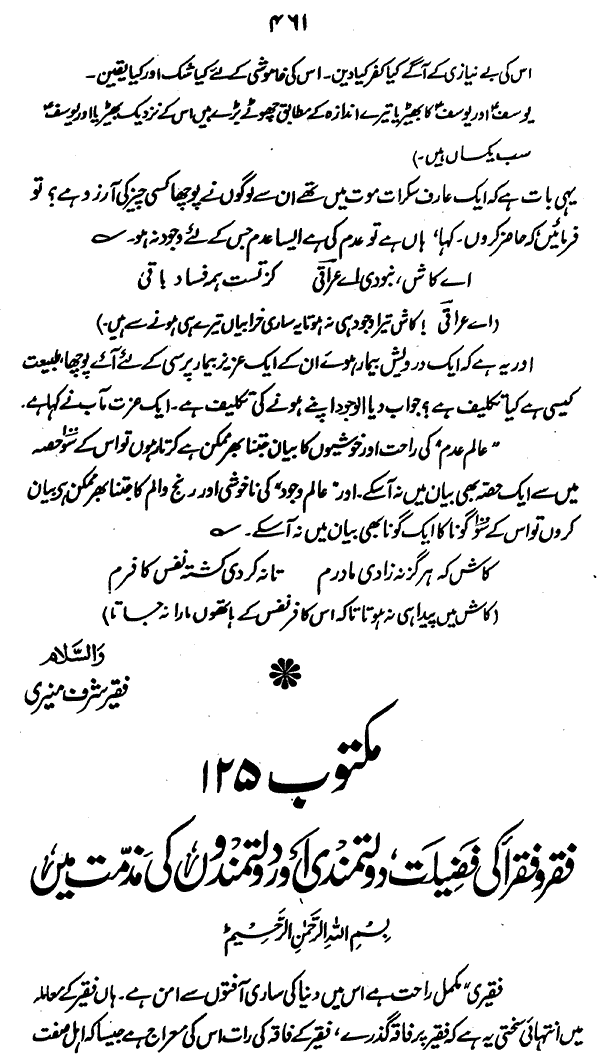 ۴۶۱
اس کی بے نیازی کے آگے کیا کفر کیا دین۔ اس کی خاموشی کے لئے کیا شک اور کیا یقین۔
یوسفؑ اور یوسفؑ کا بھیڑیا تیرے اندازہ کے مطابق چھوٹے بڑے ہیں اس کے نزدیک بھیڑیا اور یوسفؑ
سب یکساں ہیں۔)
یہی بات ہے کہ ایک عارف سکرات موت میں تھے ان سے لوگوں نے پوچھا کسی چیز کی آرزو ہے؟ تو
فرمائیں کہ حاضر کروں۔ کہا، ہاں ہے تو عدم کی ہے ایسا عدم جس کے لئے وجود نہ ہو۔ ؎
اے کاش، نبودی اے عراقیؔ کز تست ہمہ فساد باقی
(اے عراقیؔ! کاش تیرا وجود ہی نہ ہوتا یہ ساری خرابیاں تیرے ہی ہونے سے ہیں۔)
اور یہ ہے کہ ایک درویش بیمار ہوئے ان کے ایک عزیز بیمار پرسی کے لئے آئے پوچھا، طبیعت
کیسی ہے کیا تکلیف ہے؟ جواب دیا الوجود اپنے ہونے کی تکلیف ہے۔ ایک عزت مآب نے کہا ہے۔
"عالم عدم" کی راحت اور خوشیوں کا بیان جتنا بھر ممکن ہے کرتا رہوں تو اس کے سو۱۰۰ حصہ
میں سے ایک حصہ بھی بیان میں نہ آسکے۔ اور "عالم وجود" کی ناخوشی اور رنج و الم کا جتنا بھر ممکن ہو بیان
کروں تو اس کے سو۱۰۰ گونا کا ایک گونا بھی بیان میں نہ آسکے۔ ؎
کاش کہ ہرگز نہ زادی مادرم تا نہ کردی کشتہ نفس کافرم
(کاش میں پیدا ہی نہ ہوتا تاکہ اس کافر نفس کے ہاتھوں مارا نہ جاتا)
والسّلام
فقیر شرف منیری
مکتوب ۱۲۵
فقر و فقرا کی فضیلت، دولتمندی اور دولتمندوں کی مذمّت میں
بِسْمِ اللّٰہِ الرَّحْمٰنِ الرَّحِیْمِ
فقیری" مکمل راحت ہے اس میں دنیا کی ساری آفتوں سے امن ہے۔ ہاں فقیر کے معاملہ
میں انتہائی سختی یہ ہے کہ فقیر پر فاقہ گذرے، فقیر کے فاقہ کی رات اس کی معراج ہے جیسا کہ اہل صفت